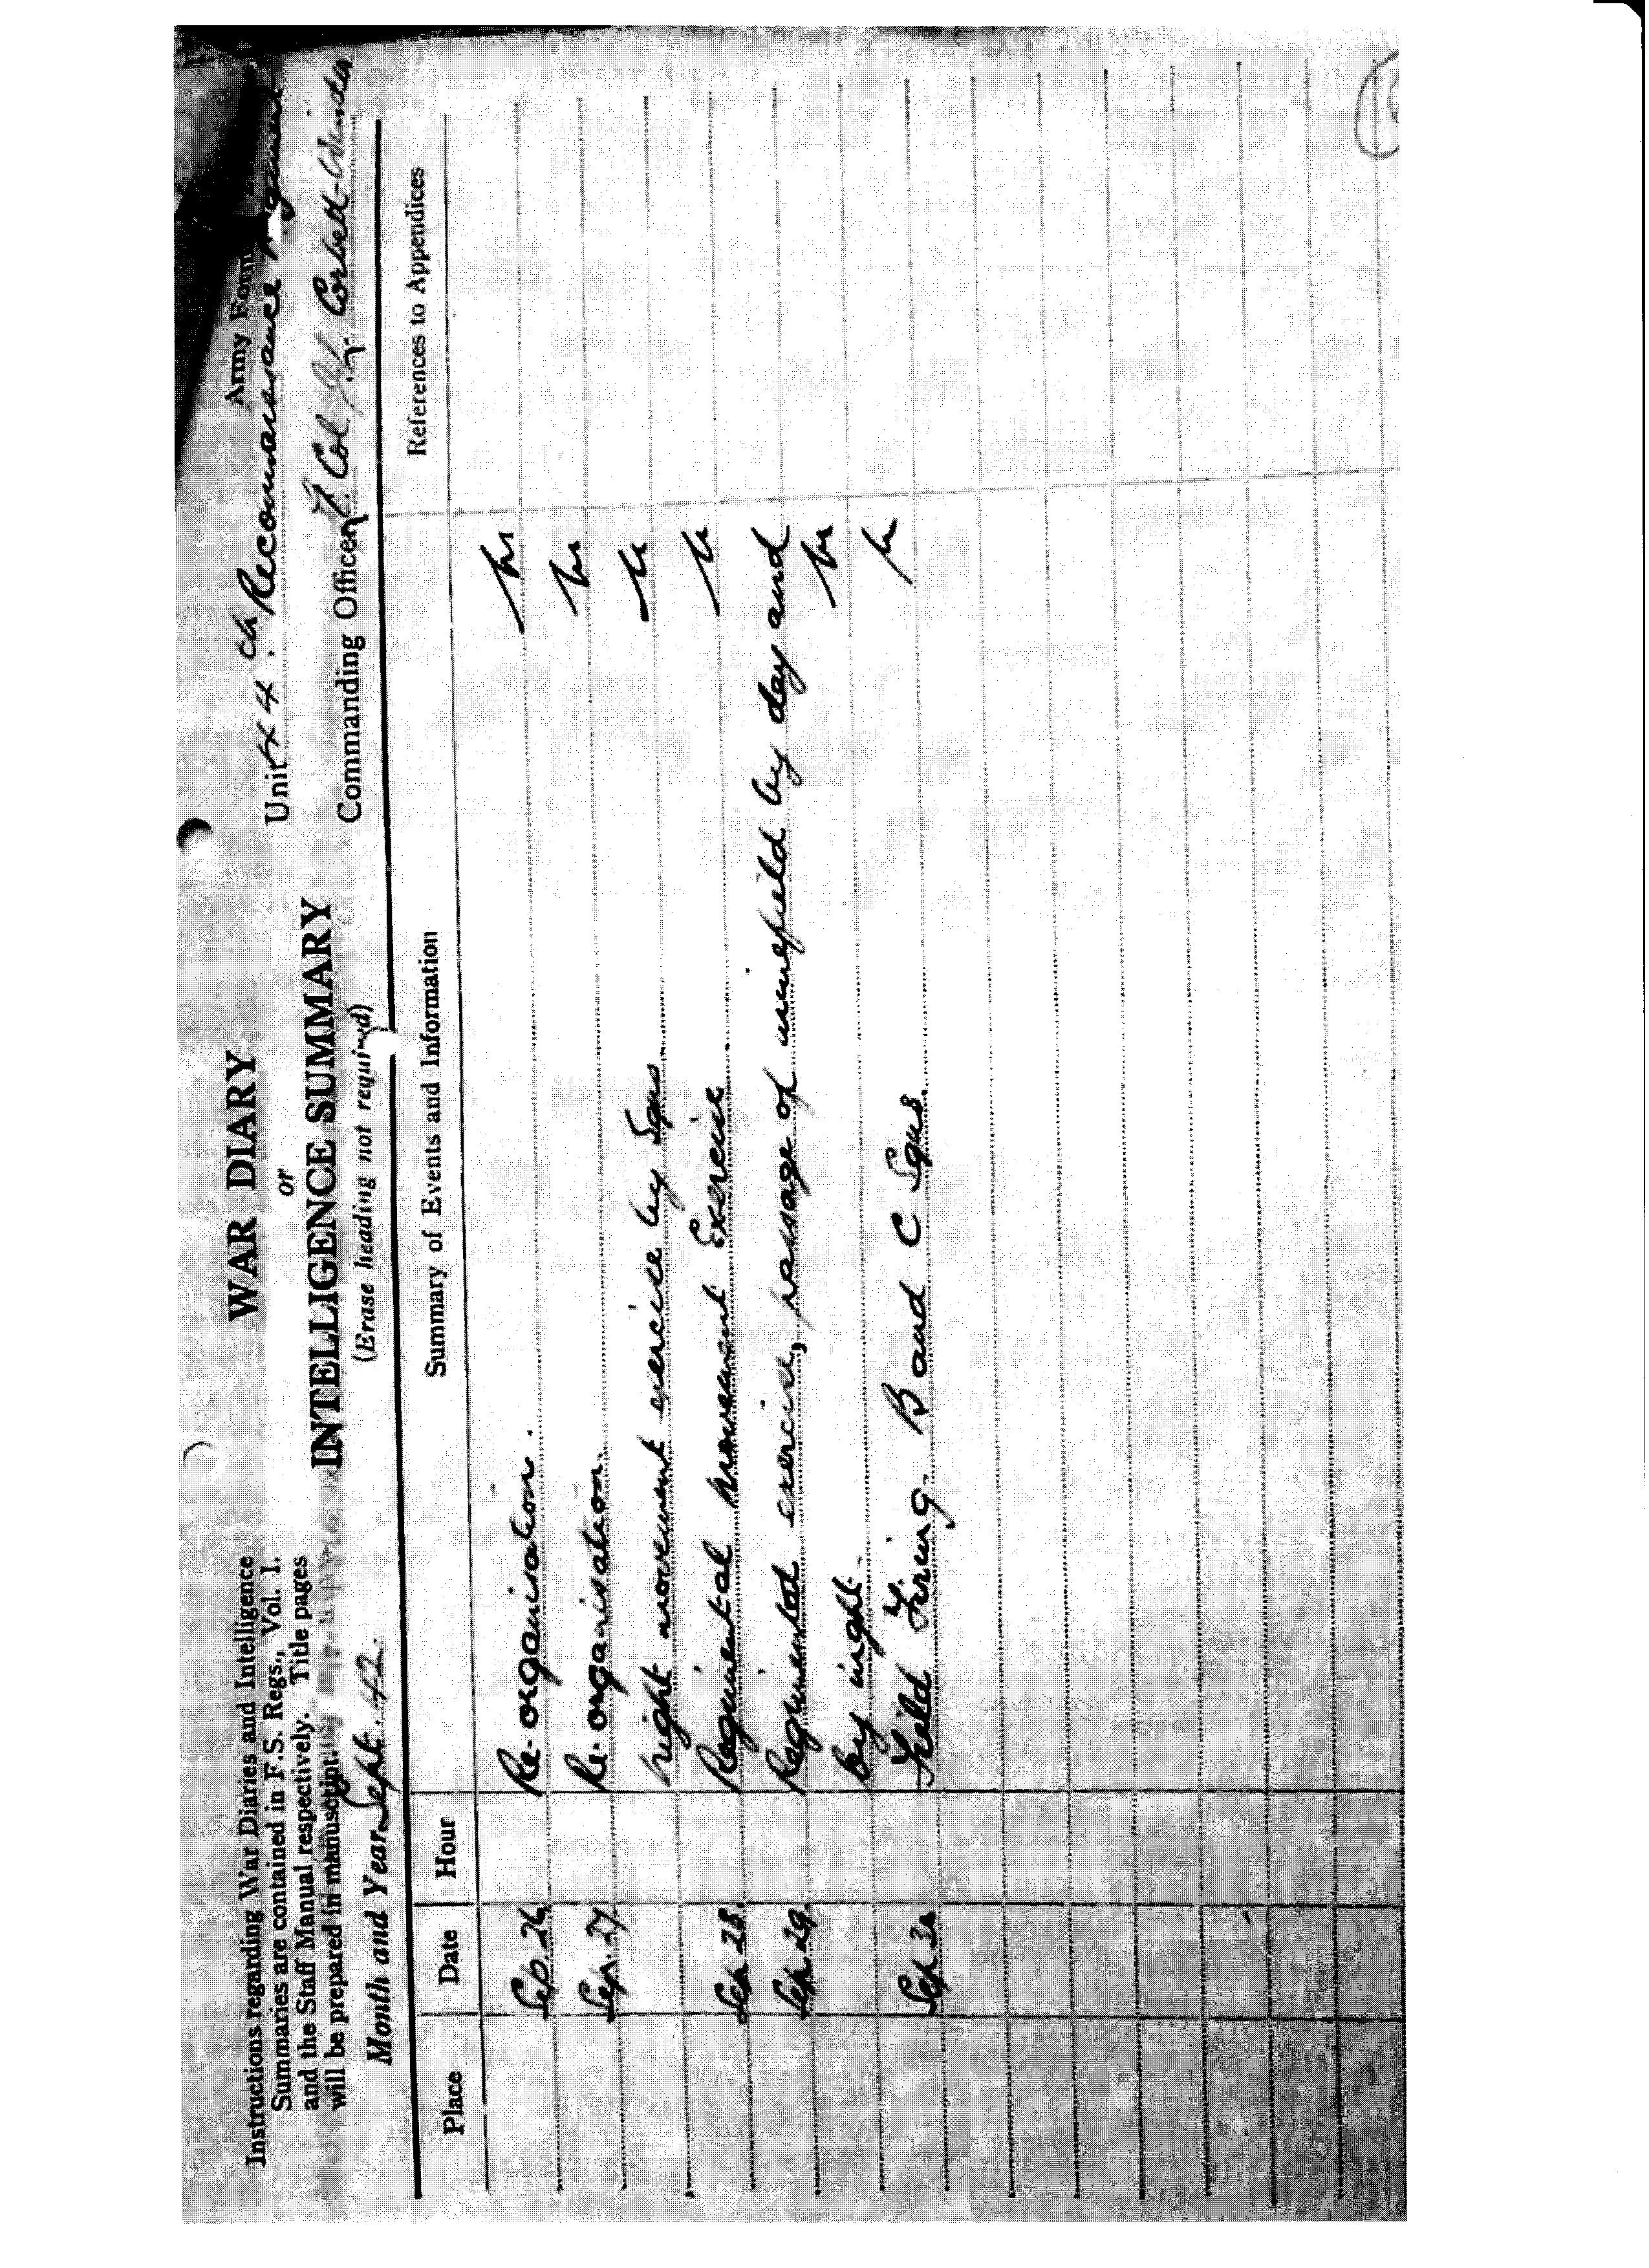 Army Form
Instructions regarding War Diaries and Intelligence
Summaries are contained in F.S. Regs., Vol. I.
and the Staff Manual respectively. Title pages
will be prepared in manuscript.
Month and Year Sept. 42.
WAR DIARY
or
INTELLIGENCE SUMMARY
(Erase heading not required)
Unit 44th Reconnaissance
Commanding Officer Lt. Col.
Place Date Hour Summary of Events and Information References to Appendices
Sep. 26 Re-organisation.
Sep. 27 Re-organisation.
Night movement exercise by Sqns.
Sep 28. Regimental Movement Exercise
Sep 29. Regimental exercise, passage of minefield by day and
by night.
Sep 30 Field Firing. B and C Sqns.